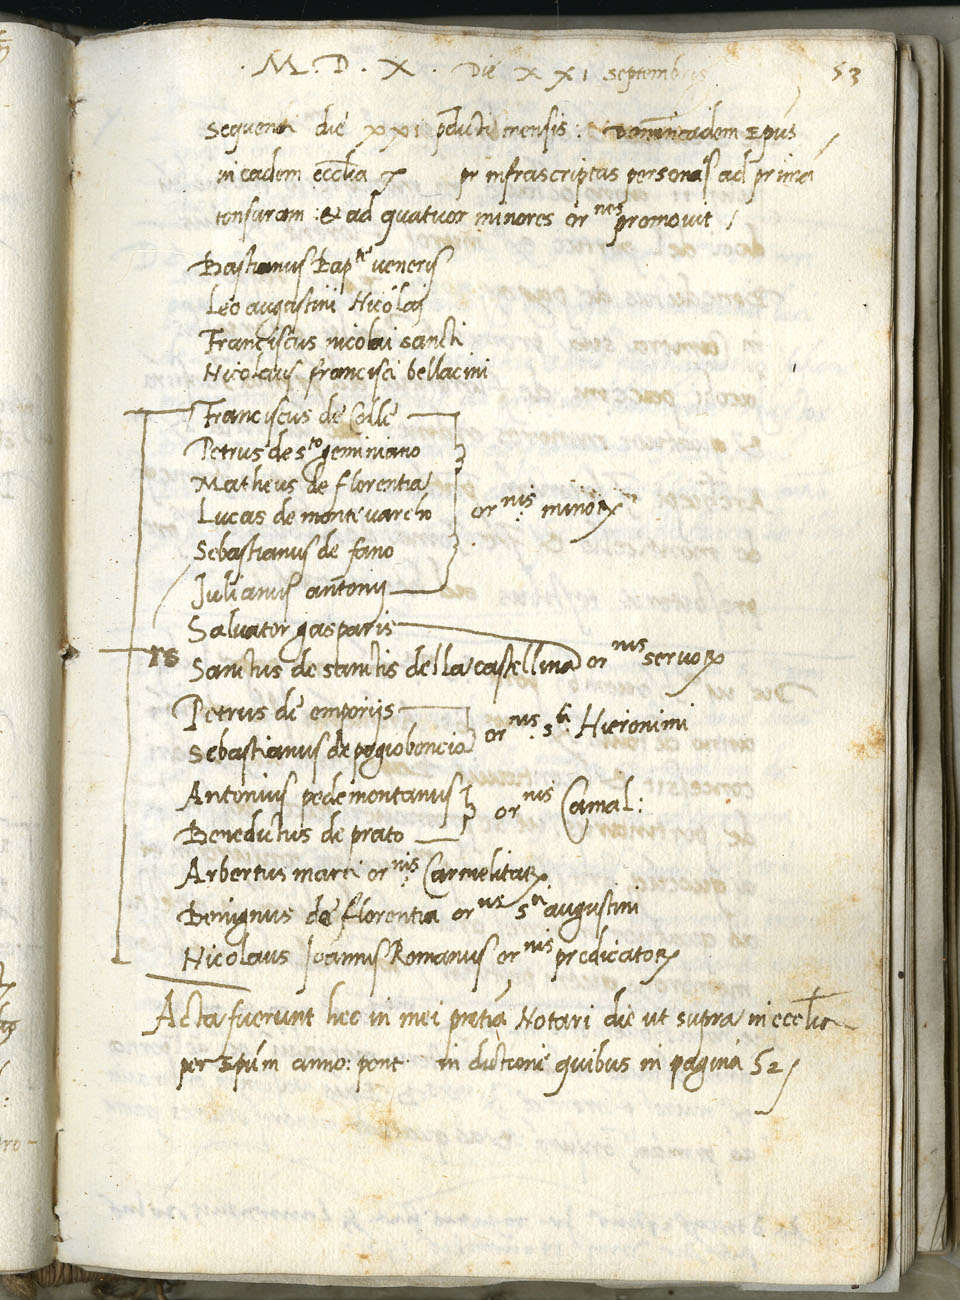 . M . D . X . Die XXI septembris 53
Sequenti die XXI p̄dicti mensis : Epūs
in eadem eccl̄ia pr infrascriptas personas ad primā
tonsuram : & ad quatuor minores ornes promovit /
Bastianus Bapte veneris
Leo augustini Nicolai
Franciscus nicolai sancti
Nicolaus francisci bellacini
Franciscus de Colle
Petrus de sto geminiano
Matheus de florentia
Lucas de monte varcho ornis minoꝝ
Sebastianus de fano
Julianus antonij
Salvator gasparis
rs Sanctus de sanctis della castellina ornis servoꝝ
Petrus de emporijs
Sebastianus de pogioboncio ornis sti Hieronimi
Antonius pedemontanus
Benedictus de prato ornis Camal:
Arbertus marci ornis Carmelitaꝝ
Benignus de florentia ornis sti augustini
Nicolaus Joannis Romanus ornis predicatoꝝ
Acta fuerunt hec in mei p̄ntia Notari die ut supra in eccl̄ia
per Epūm anno: pont in dictione quibus in pagina 52 /